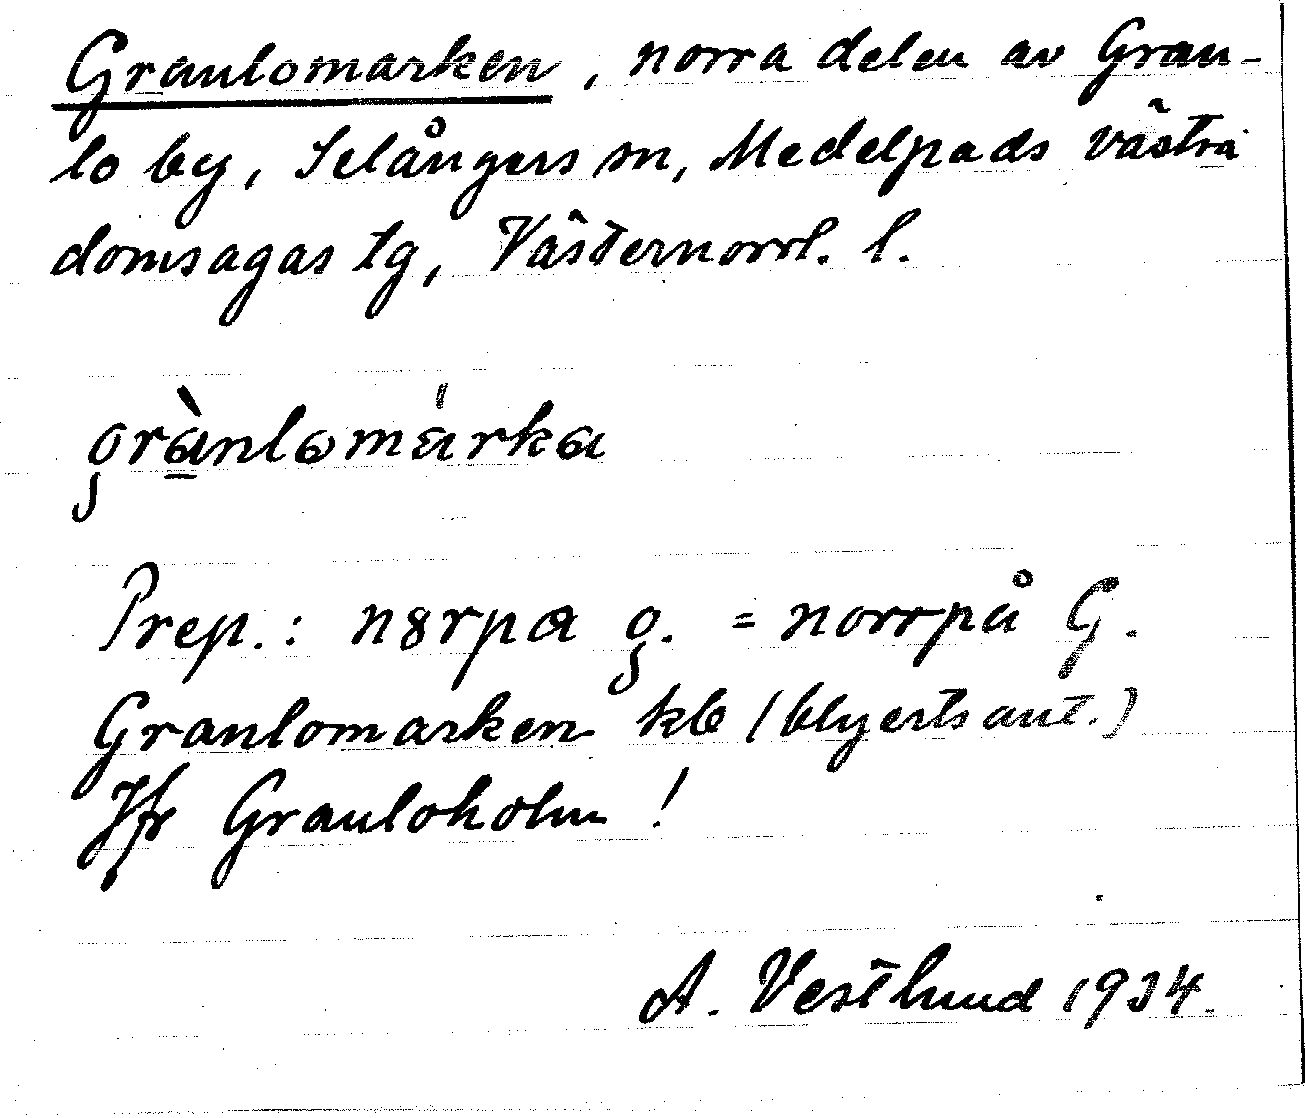 Granlomarken, norra delen av Gran-
lo by, Selångers sn, Medelpads västra
domsagas tg, Västernorrl. l.
grànlomárka
Prep.: nȣrpa g. = norrpå G.
Granlomarken kb (blyertsant.)
Jfr Granloholm!
A. Vestlund 1934.